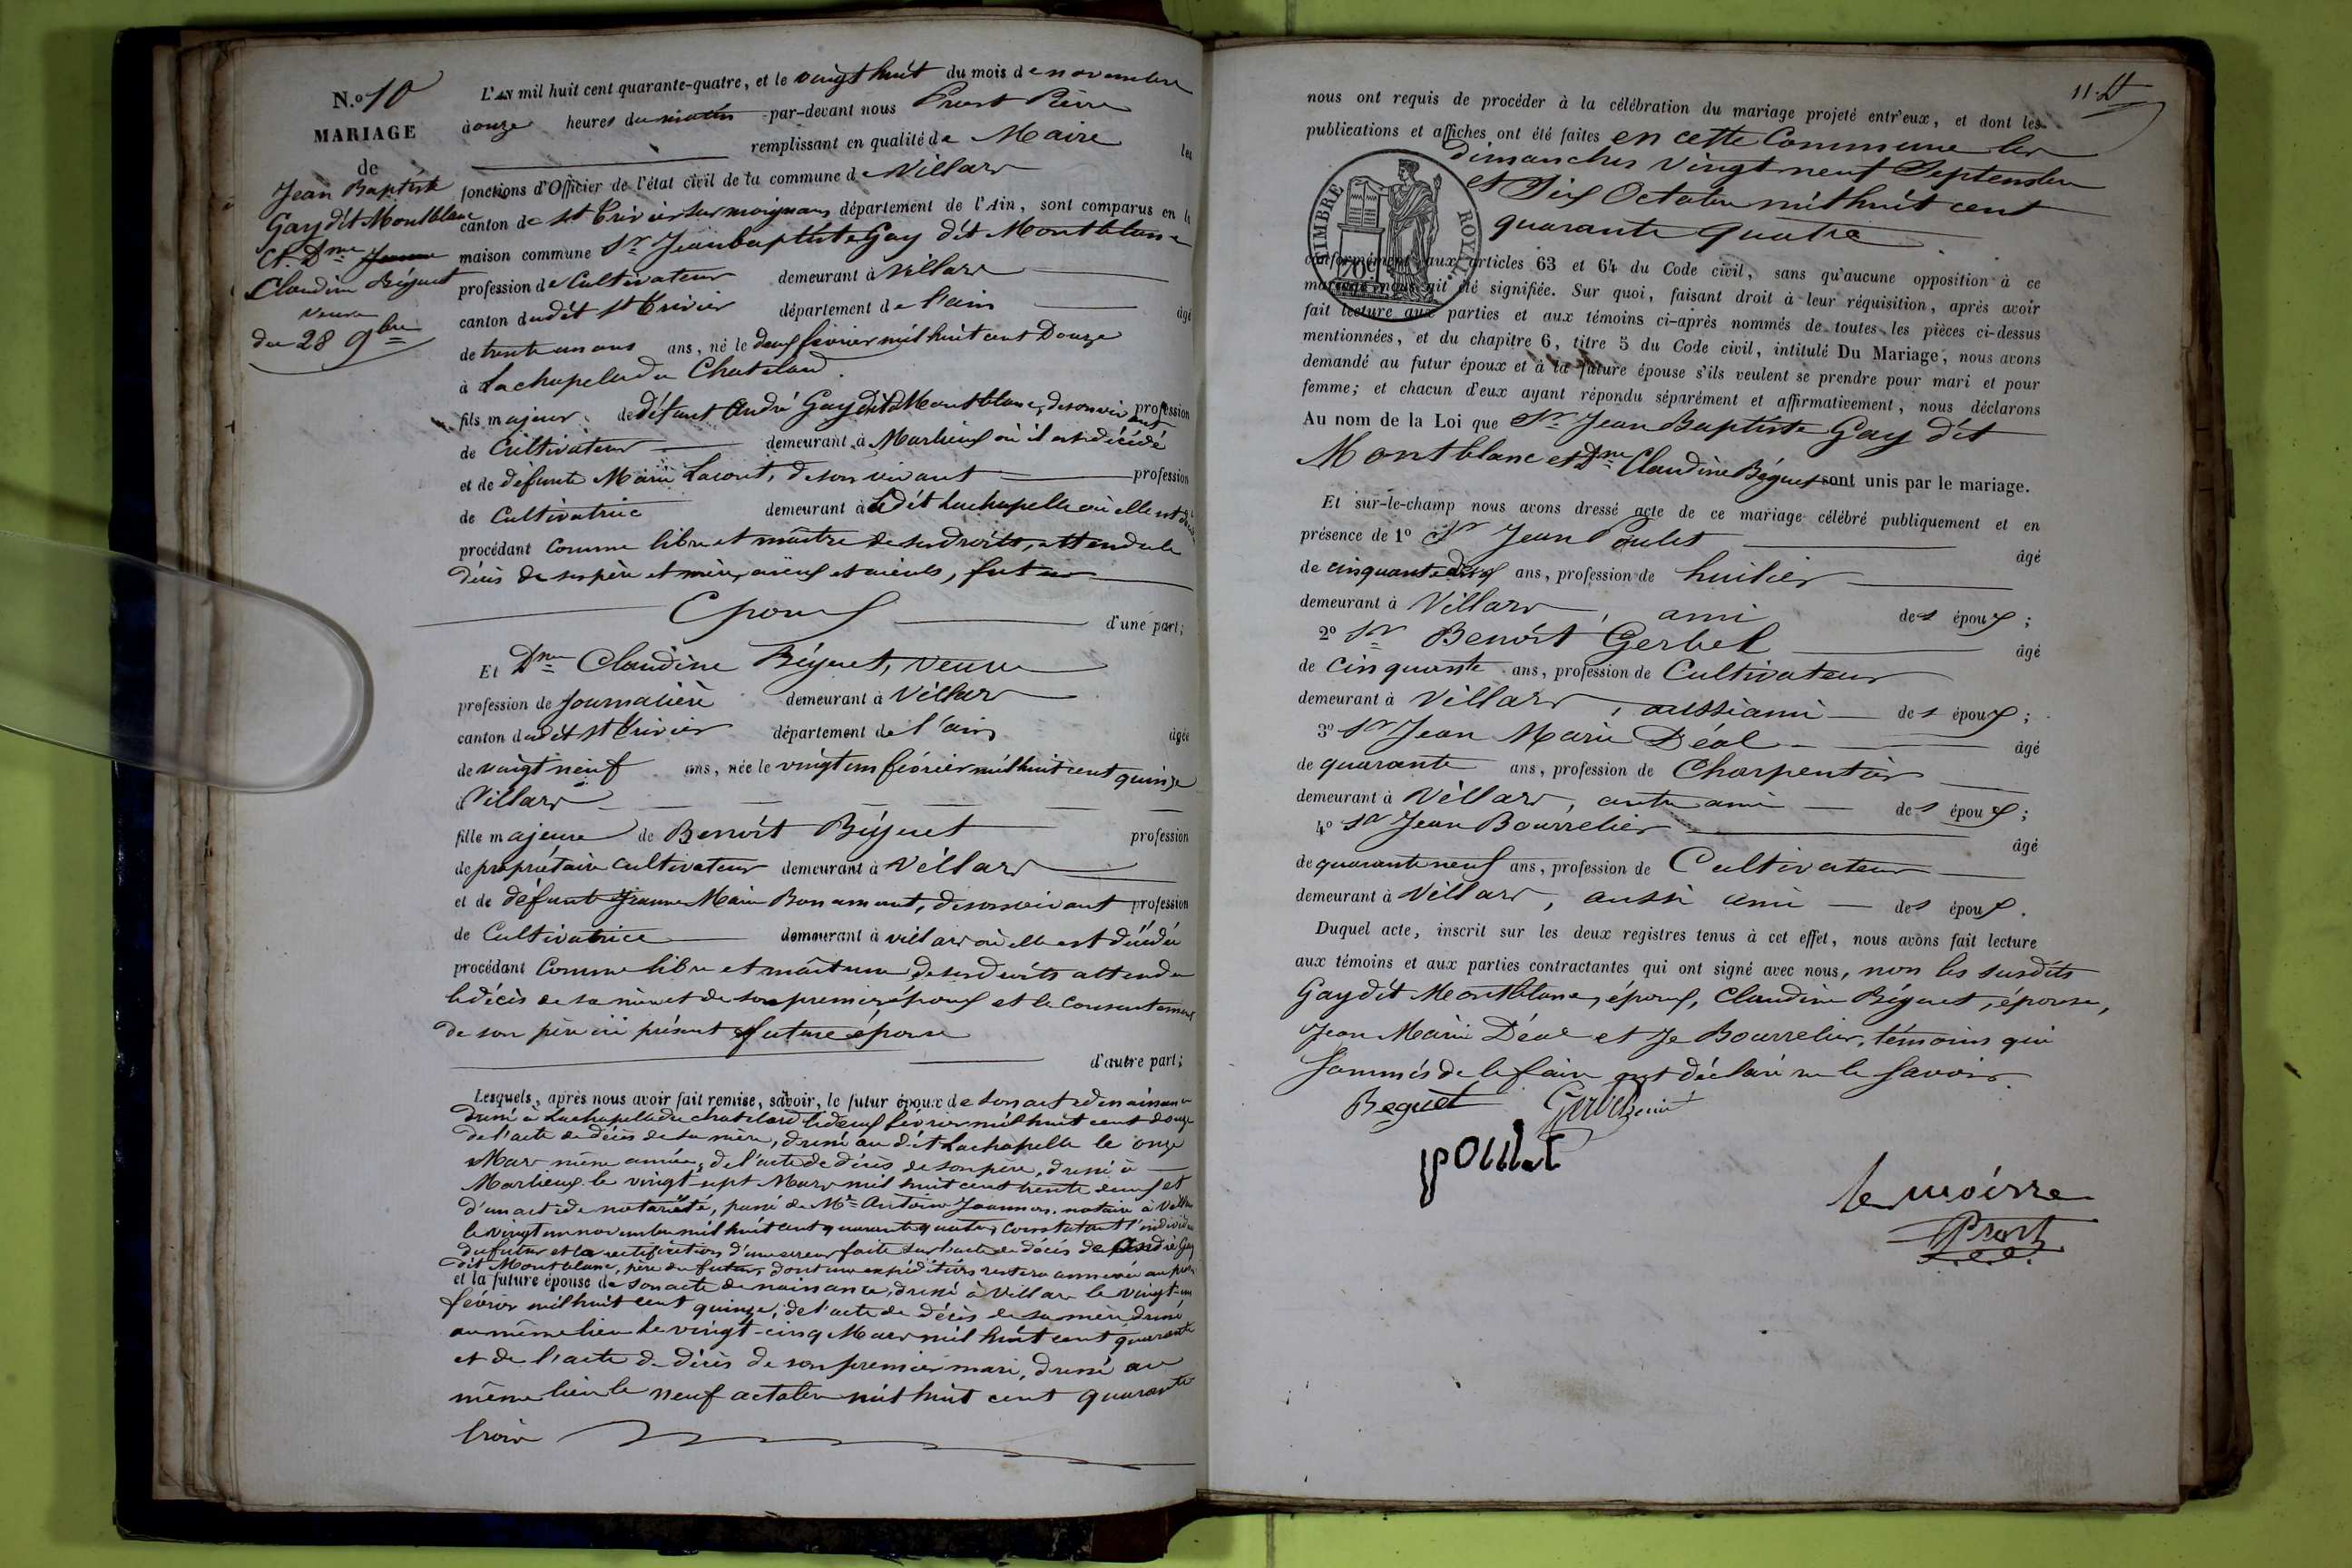 N.º 10
MARIAGE
de
Jean Baptiste
Gay dit Montblanc
et Dme Jeanne
Claudine Béguet
veuve
du 28 9bre
L'AN mil huit cent quarante-quatre, et le vingt huit du mois de novembre
à onze heures du matin par-devant nous Prost Pierre
remplissant en qualité de Maire les
fonctions d'Officier de l'état civil de la commune de Villars
canton de St Trivier sur moignans département de l'Ain, sont comparus en la
maison commune Sr Jean baptiste Gay dit Montblanc
profession de Cultivateur demeurant à Villars
canton dudit St Trivier département de l'ain âgé
de trente un ans ans, né le deux février mil huit cent Douze
à Lachapelle du Chatelard
fils majeur de défunt André Gay dit Montblanc, de son vivant profession
de Cultivateur demeurant à Marlieux où il est décédé
et de défunte Marie Lacout, de son vivant profession
de Cultivatrice demeurant à dit Lachapelle où elle est
procédant comme libre et maître de ses droits, attendu le
décès de ses père et mère, aïeux et aïeuls, futur
Epoux d'une part;
Et Dme Claudine Béguet, veuve
profession de Journalière demeurant à Villars
canton dudit St Trivier département de l'ain âgée
de vingt neuf ans, née le vingt un février mil huit cent quinze
à Villars
fille majeure de Benoît Béguet profession
de propriétaire cultivateur demeurant à Villars
et de défunte Jeanne Marie Bonamant, de son vivant profession
de Cultivatrice demeurant à villars où elle est décédée
procédant comme libre et maîtresse de ses droits attendu
le décès de sa mère et de son premier époux et le consentement
de son père ici présent future épouse
d'autre part;
Lesquels, après nous avoir fait remise, savoir, le futur époux de son acte de naissance
dressé à Lachapelle du chatelard le deux février mil huit cent douze
de l'acte de décès de sa mère, dressé au dit Lachapelle le onze
Mars même année, de l'acte de décès de son père, dressé à
Marlieux le vingt sept Mars mil huit cent trente deux et
d'un acte de notoriété, passé de Me Antoine notaire à Villars
le vingt un novembre mil huit cent quarante quatre, constatant l'individu
du futur et la rectification d'une erreur faite sur l'acte de décès de André Gay
dit Montblanc, père du futur, dont une expédition restera annexée au
et la future épouse de son acte de naissance, dressé à Villars le vingt-un
février mil huit cent quinze, de l'acte de décès de sa mère dressé
au même lieu le vingt-cinq Mars mil huit cent quarante
et de l'acte de décès de son premier mari, dressé au
même lieu le neuf octobre mil huit cent quarante
trois
11
nous ont requis de procéder à la célébration du mariage projeté entr'eux, et dont les
publications et affiches ont été faites en cette Commune les
dimanches vingt neuf Septembre
et Six Octobre mil huit cent
quarante quatre
TIMBRE ROYAL
70c
conformément aux articles 63 et 64 du Code civil, sans qu'aucune opposition à ce
mariage nous ait été signifiée. Sur quoi, faisant droit à leur réquisition, après avoir
fait lecture aux parties et aux témoins ci-après nommés de toutes les pièces ci-dessus
mentionnées, et du chapitre 6, titre 5 du Code civil, intitulé Du Mariage, nous avons
demandé au futur époux et à la future épouse s'ils veulent se prendre pour mari et pour
femme; et chacun d'eux ayant répondu séparément et affirmativement, nous déclarons
Au nom de la Loi que Sr Jean Baptiste Gay dit
Montblanc et Dme Claudine Béguet sont unis par le mariage.
Et sur-le-champ nous avons dressé acte de ce mariage célébré publiquement et en
présence de 1º Sr Jean Poulet âgé
de cinquante deux ans, profession de huilier
demeurant à Villars, ami des époux;
2º Sr Benoît Gerbel âgé
de cinquante ans, profession de Cultivateur
demeurant à Villars, aussi ami des époux;
3º Sr Jean Marie Déal âgé
de quarante ans, profession de Charpentier
demeurant à Villars, autre ami des époux;
4º Sr Jean Bourrelier âgé
de quarante neuf ans, profession de Cultivateur
demeurant à Villars, aussi ami des époux.
Duquel acte, inscrit sur les deux registres tenus à cet effet, nous avons fait lecture
aux témoins et aux parties contractantes qui ont signé avec nous, non les susdits
Gay dit Montblanc, époux, Claudine Béguet, épouse,
Jean Marie Déal et Je Bourrelier, témoins qui
sommés de le faire ont déclaré ne le savoir.
Beguet Gerbel
poulet
le moirre
Prost